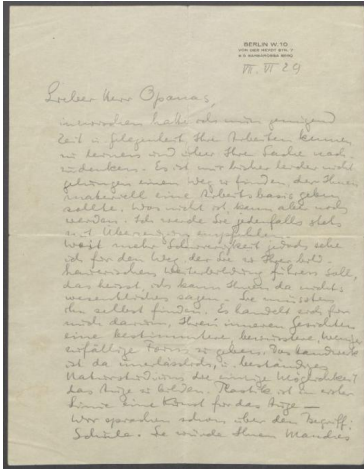 BERLIN W. 10
VON DER HEYDT STR. 7
VII. VI 29
Lieber Herr Opanas,
inzwischen hatte ich nun genügend
Zeit u. Gelegenheit, Ihre Arbeiten kennen
zu lernen und über Ihre Sache nach-
zudenken. Es ist mir bisher leider nicht
gelungen einen Weg zu finden, der Ihnen
materiell eine Arbeitsbasis geben
sollte. Was nicht ist kann aber noch
werden. Ich werde Sie jedenfalls stets
mit Überzeugung empfehlen.
Weit mehr Schwierigkeit jedoch sehe
ich für den Weg, der Sie zu Ihrer bild-
hauerischen Weiterbildung führen soll,
das heisst, ich kann Ihnen da nichts
wesentliches sagen. Sie müssten
ihn selbst finden. Es handelt sich für
mich darum, Ihren inneren Gesichten
eine bestimmtere, bewusstere, weniger
zufällige Form zu geben. Das Handwerk
ist da unerlässlich, u. beständiges
Naturstudium die einzige Möglichkeit
das Auge zu bilden. Plastik ist in erster
Linie eine Kunst für das Auge —
Wir sprachen schon über den Begriff:
Schule. Sie würde Ihnen Manches